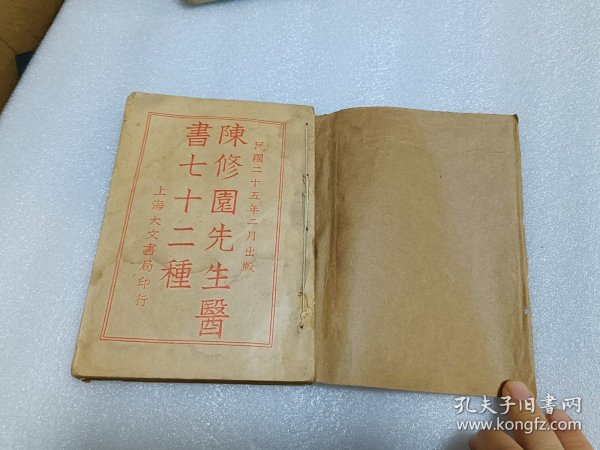 民國二十五年二月出版
陳修園先生醫
書七十二種
上海大文書局印行
孔夫子旧书网
www.kongfz.com